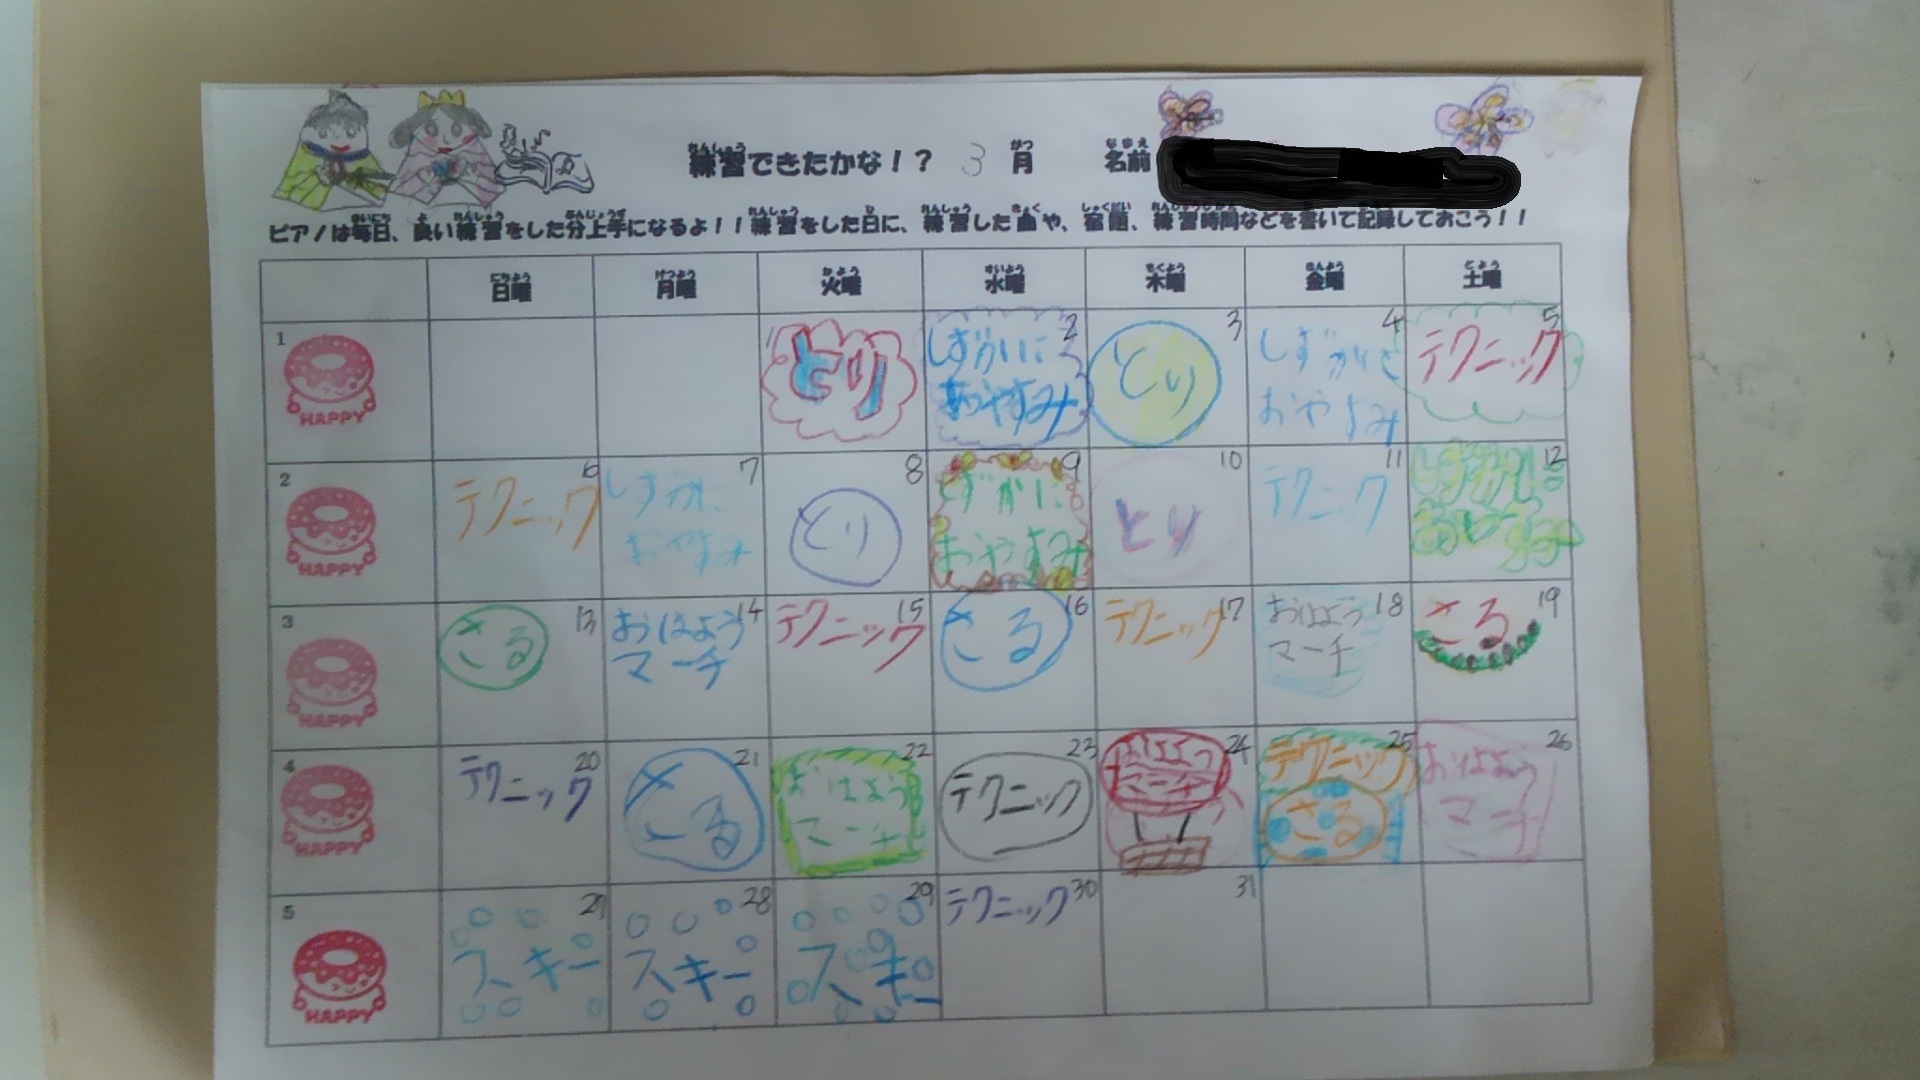 練習できたかな!? 3月 名前
ピアノは毎日、良い練習をした分上手になるよ!!練習をした日に、練習した曲や、宿題、練習時間などを書いて記録しておこう!!
日曜 月曜 火曜 水曜 木曜 金曜 土曜
1 HAPPY
1 とり
2 しずかに
おやすみ
3 とり
4 しずかに
おやすみ
5 テクニック
2 HAPPY
6 テクニック
7 しずかに
おやすみ
8 とり
9 しずかに
おやすみ
10 とり
11 テクニック
12 しずかに
おやすみ
3 HAPPY
13 さる
14 おはよう
マーチ
15 テクニック
16 さる
17 テクニック
18 おはよう
マーチ
19 さる
4 HAPPY
20 テクニック
21 さる
22 おはよう
マーチ
23 テクニック
24 おはよう
マーチ
25 テクニック
さる
26 おはよう
マーチ
5 HAPPY
27 スキー
28 スキー
29 スキー
30 テクニック
31